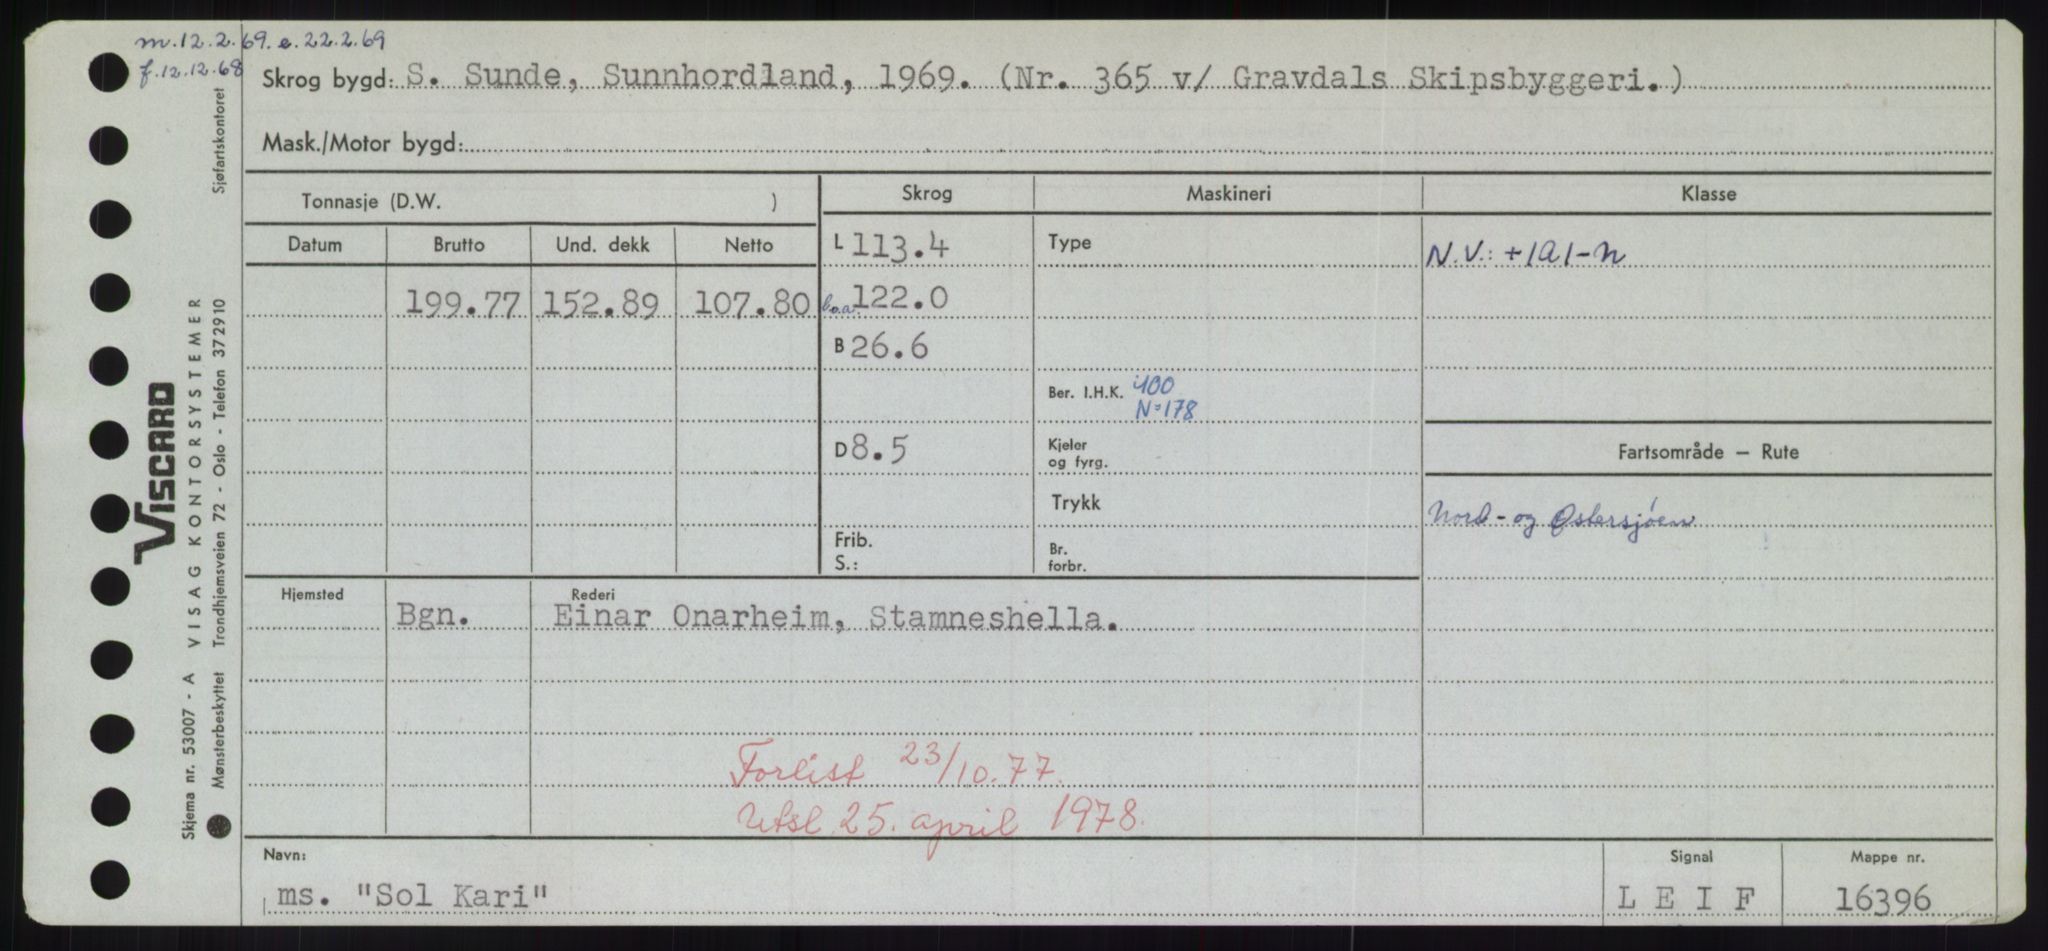 m. 12.2.69. e. 22.2.69
f. 12.12.68
Skrog bygd: S. Sunde, Sunnhordland, 1969. (Nr. 365 v/ Gravdals Skipsbyggeri.)
Mask./Motor bygd:
Tonnasje (D.W. )
Skrog
Maskineri
Klasse
Datum
Brutto
Und. dekk
Netto
L 113.4
Type
N.V.: +1A1-N
199.77
152.89
107.80
l.o.a. 122.0
B 26.6
Ber. I.H.K. 400
N=178
D 8.5
Kjeler
og fyrg.
Fartsområde — Rute
Trykk
Nord- og Østersjøen
Frib.
S.:
Br.
forbr.
Hjemsted
Bgn.
Rederi
Einar Onarheim, Stamneshella.
Forlist 23/10.77.
Utsl. 25. april 1978.
Navn:
ms. "Sol Kari"
Signal
L E I F
Mappe nr.
16396
VISCARD
Skjema nr. 53007 - A VISAG KONTORSYSTEMER
Mønsterbeskyttet Trondhjemsveien 72 - Oslo - Telefon 372910 Sjøfartskontoret